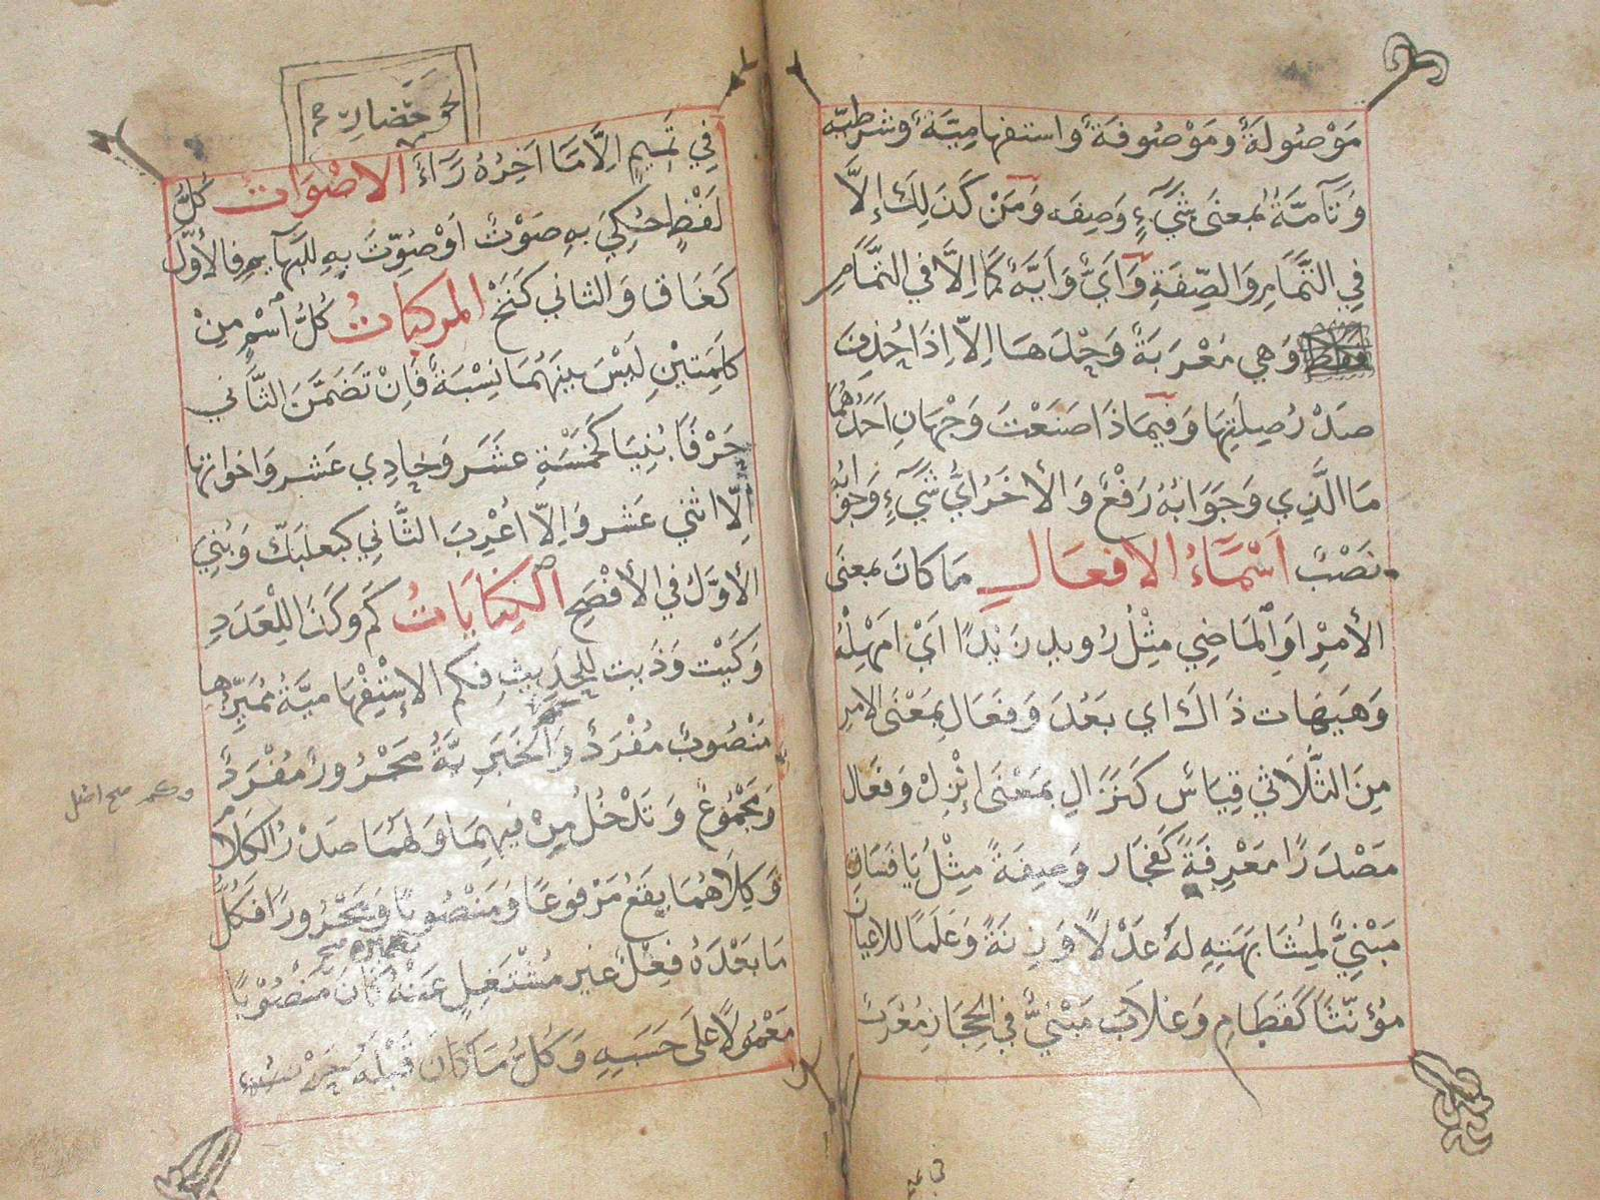 مَوْصُولَةً ومَوْصُوفَةً واستفهاميّةً وشرطيّه
وَتَآمّةً بمعنَى شَيْءٍ وَصِفَه وَمَنْ كَذَلِكَ إِلَّا
فِي التَّمَامِ وَالصِّفَةِ وَأَيٌّ وَأَيَّةٌ كَمَا اِلَّا في التَّمَامِ
وَهِي مُعْرَبَةٌ وَحْدَهَا اِلَّا اِذَا حُذِفَ
صَدْرُ صِلَتِهَا وَفي مَاذَا صَنَعْتَ وَجْهَانِ اَحَدُهُمَا
مَا الَّذِي وَجَوَابُهُ رَفْعٌ وَالأخَرُ اَيُّ شَيْءٍ وَجَوَابُهُ
نَصْبٌ اَسْمَاءُ الافعَالِ مَا كَانَ بمعنَى
الأمْرِ اوَالْمَاضِي مِثْلُ رُويدِ زَيْدًا اَيْ اَمْهِلْهُ
وَهَيهَات ذَاكَ اي بَعُدَ وَفَعَالِ بِمَعْنَى الامرِ
مِنَ الثَّلَاثي قِيَاسٌ كَنَزَالِ بمَعْنَى اِنْزِلْ وَفَعَال
مَصْدَرًا مَعْرِفَةً كَفَجَار وَصِفَةً مِثْلُ يَا فَسَاقِ
مَبْنِيٌّ لِمُشَابَهَتِهِ لَهُ عَدْلًا وَزِنَةً وَعَلَمًا للاعيانِ
مُؤنّثًا كَقَطَامِ وَغَلَابَ مَبْنِيٌّ فِي الحِجَازِ مُعْرَبٌ
فِي تَمِيمٍ اِلَّا مَا اَخِرُهُ رَاءٌ الاصْوَات كُلُّ
لَفْظٍ حُكِيَ بِهِ صَوْتٌ اَوْصُوِّتَ بِهِ للبهَايِمِ فالأوّلُ
كَغَاق وَالثاني كَنَخْ المركبَاتُ كُلُّ اسْمٍ مِنْ
كلِمَتَيْنِ لَيْسَ بينهُمَا نِسْبَةٌ فَاِنْ تَضَمَّنَ الثَّاني
حَرْفًا بُنِيَا كَخَمْسَةِ عَشَر وَحَادِي عَشر وَاخواتها
اِلّا اثني عَشر وَاِلّا اُعْرِبَ الثَّانِي كبعلبَكّ وَبُنِيَ
الأوَّلُ في الأفْصَحِ الْكِنَايَاتُ كَم وَكَذَا لِلْعَدَدِ
وَكَيْت وَذَيت لِلحَدِيثِ فكم الاِسْتِفْهَاميَّةُ مُمَيّزُها
مَنْصُوبٌ مُفْرَدٌ وَالخَبَرِيَّةُ مَجْرُورٌ مُفْرَدٌ
وَمَجْمُوعٌ وَتَدْخُلُ مِنْ فيهِمَا وَلهُمَا صَدْرُ الكَلَامِ
وَكِلَاهُمَا يقَعُ مَرْفوعًا وَمَنْصُوبًا وَمَجْرُورًا فكُلُّ
مَا بَعْدَهُ فِعْلٌ غير مُشْتَغِلٍ عَنْهُ كَانَ مَنْصُوْبًا
مَعْمُولًا عَلَى حَسَبِهِ وَكُلُّ مَا كَانَ قَبْلَهُ حَرْفُ